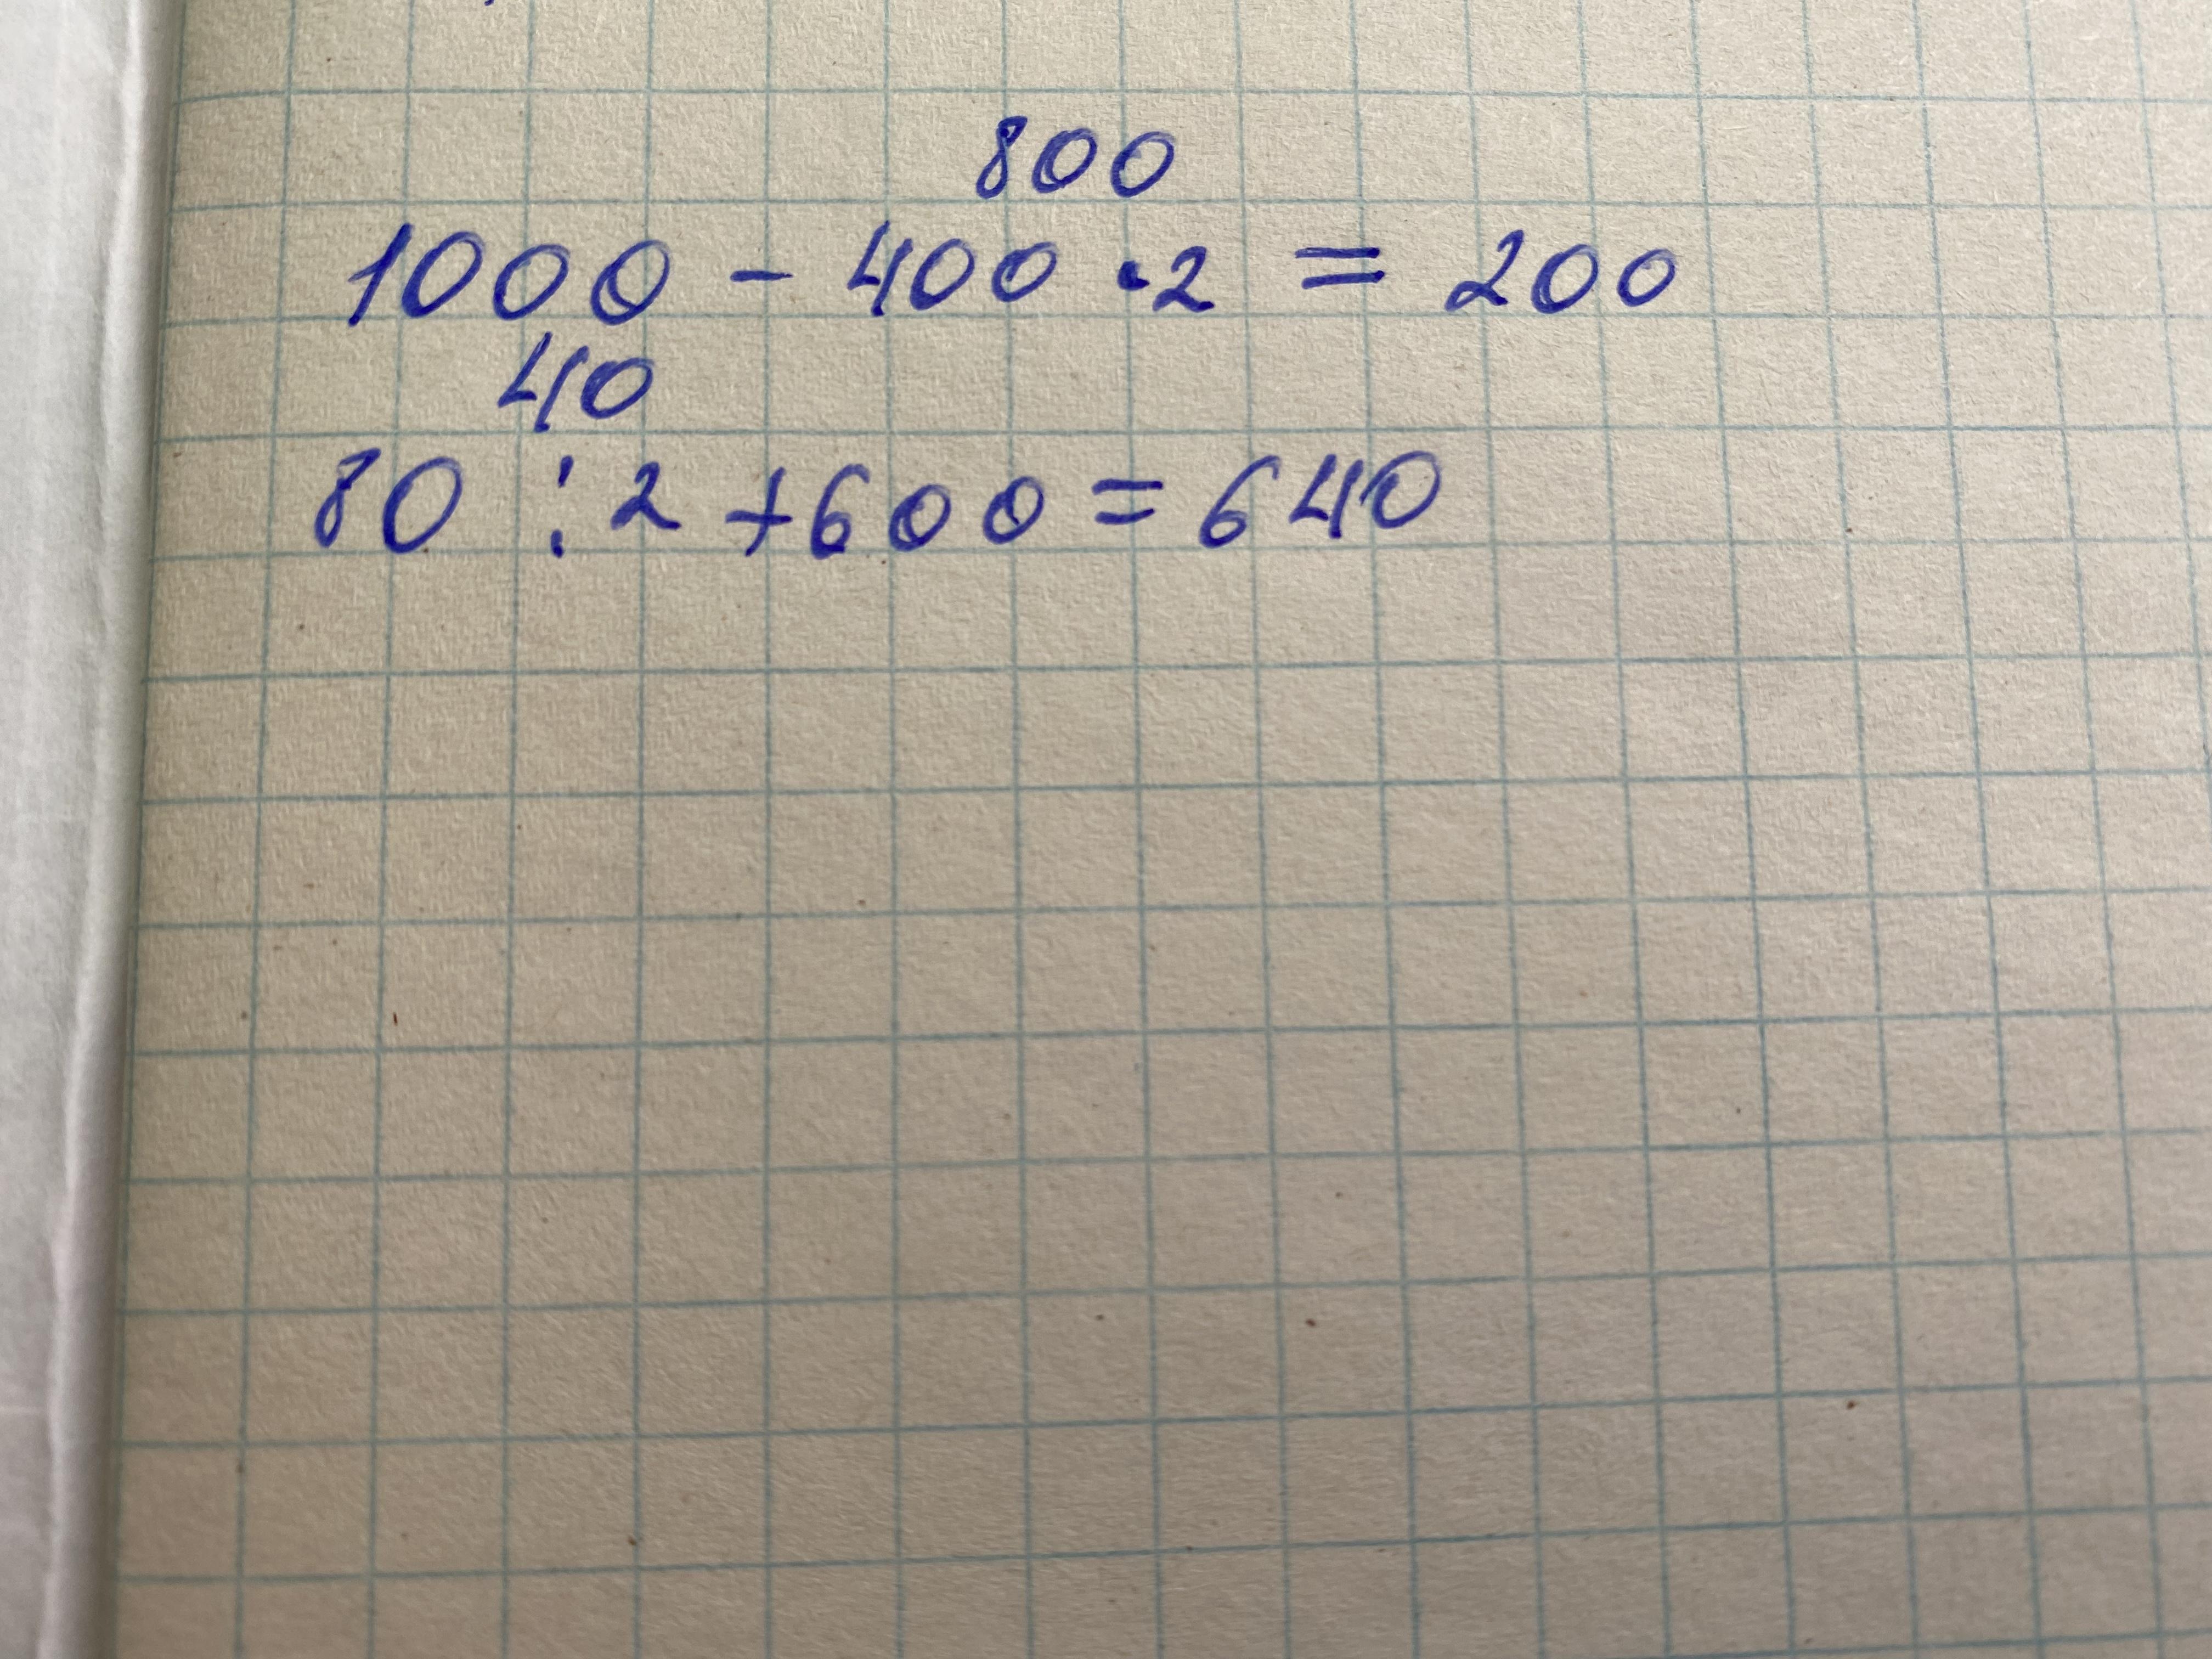 800
1000 - 400 · 2 = 200
40
80 : 2 + 600 = 640